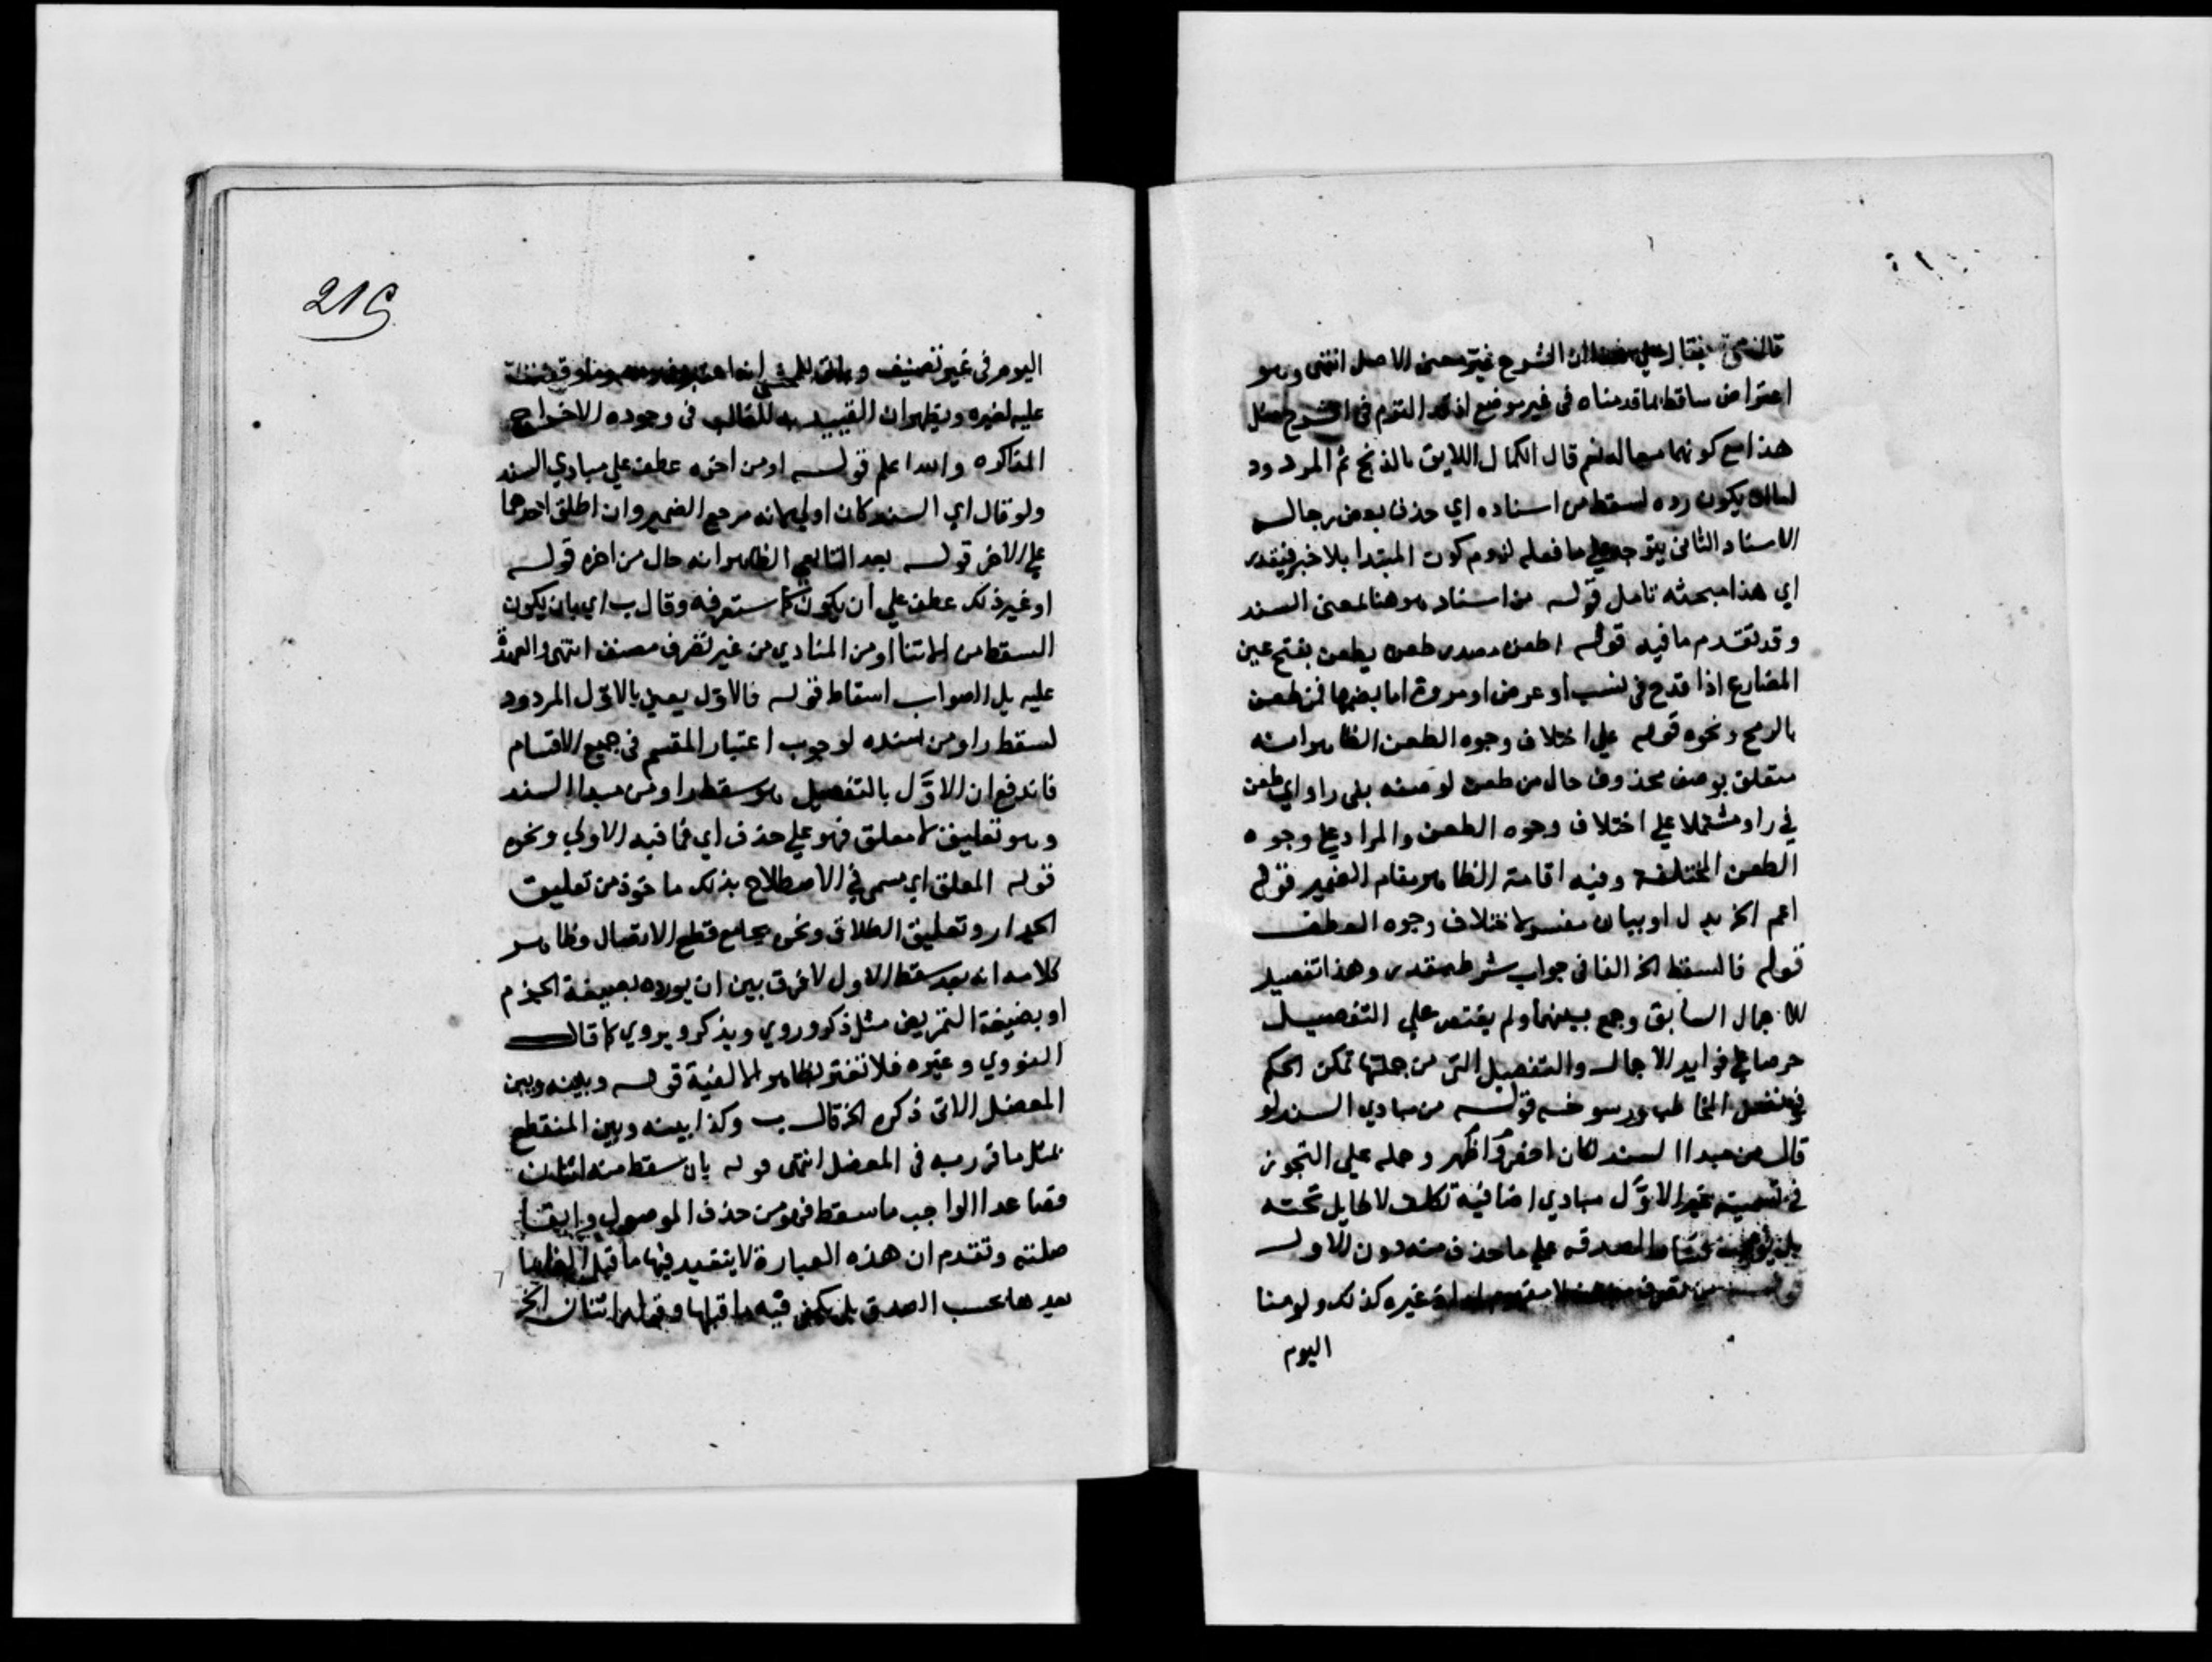 الشرح غير معنى الاصل انتهى وهو
اعتراض ساقط لما قدمناه في غير موضع انه التزم في الشرح مثل
هذا مع كونهما معا له نعم قال الكمال اللايق بالدمج ثم المردود
اما ان يكون رده لسقط من اسناده اي حذف بعض رجال
الاسناد الثاني يتوجه على ما فعله لزوم كون المبتدا بلا خبر فيقدر
اي هذا مبحثه تامل قوله من اسناد هو هنا بمعنى السند
وقد تقدم ما فيه قوله او طعن مصدر طعن يطعن بفتح عين
المضارع اذا قدح في نسب او عرض او مروة اما بضمها فمن طعن
بالرمح ونحوه قوله على اختلاف وجوه الطعن الظاهر انه
متعلق بوصف محذوف حال من طعن لوصفه بفي راو اي طعن
في راو مشتملا على اختلاف وجوه الطعن والمراد على وجوه
الطعن المختلفة وفيه اقامة الظاهر مقام الضمير قوله
اعم الخ بدل او بيان مفسر لاختلاف وجوه الطعن
قوله فالسقط الخ الفا في جواب شرط مقدر وهذا تفصيل
للاجمال السابق وجمع بينهما ولم يقتصر على التفصيل
حرصا على فوايد الاجمال والتفصيل التي من جملتها تمكن الحكم
في نفس المخاطب ورسوخه قوله من مبادي السند لو
قال من مبدا السند لكان اخصر واظهر وحمله على التجوز
في تسمية غير الاول مبادي اضافية تكلف لا طايل تحته
بل لصدقه على ما حذف منه دون الاول
قوله من تصرف مصنف لا مفهوم له اذ غيره كذلك ولو منا
اليوم
216
اليوم في غير تصنيف
عليه لغيره ويظهر ان التقييد به للغالب في وجوده الاخراج
المذاكرة والله اعلم قوله او من اخره عطف على مبادي السند
ولو قال اي السند كان اولى لانه مرجع الضمير وان اطلق احدهما
على الاخر قوله بعد التابعي الظاهر انه حال من اخره قوله
او غير ذلك عطف على ان يكون كما ستعرفه وقال ب اي بان يكون
السقط من اثنا او من المبادي من غير تصرف مصنف انتهى والعهدة
عليه بل الصواب اسقاط قوله فالاول يعني بالاول المردود
لسقط راو من سنده لوجوب اعتبار المقسم في جميع الاقسام
فاندفع ان الاول بالتفصيل هو سقط راو من مبدا السند
وهو تعليق لا معلق فهو على حذف اي فما فيه الاولى ونحوه
قوله المعلق اي يسمى في الاصطلاح بذلك ماخوذ من تعليق
الجدار وتعليق الطلاق ونحوه بجامع قطع الاتصال وظاهر
كلامه انه بعد سقط الاول لا فرق بين ان يورده بصيغة الجزم
او بصيغة التمريض مثل ذكر وروي ويذكر ويروي كما قال
النووي وغيره فلا تغتر بظاهر الالفية قوله وبينه وبين
المعضل الاتي ذكره الخ قال ب وكذا بينه وبين المنقطع
بمثل ما قرر به في المعضل انتهى قوله بان سقط منه اثنان
فصاعدا الواجب ما سقط فهو من حذف الموصول وابقا
صلته وتقدم ان هذه العبارة لا يتقيد فيها ما قبل الفا
بعدها بحسب الصدق بل يكفي فيه ما قبلها وقوله اثنان الخ